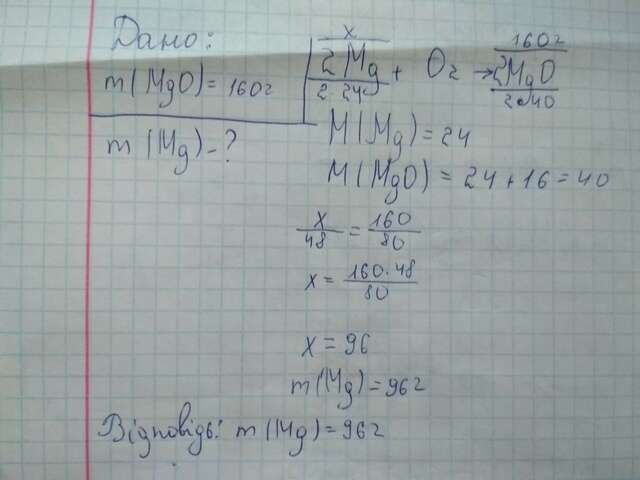 Дано:
m(MgO) = 160г
m(Mg) - ?
x 160г
2Mg + O₂ → 2MgO
2·24 2·40
M(Mg) = 24
M(MgO) = 24 + 16 = 40
x/48 = 160/80
x = 160·48/80
x = 96
m(Mg) = 96г
Відповідь: m(Mg) = 96г